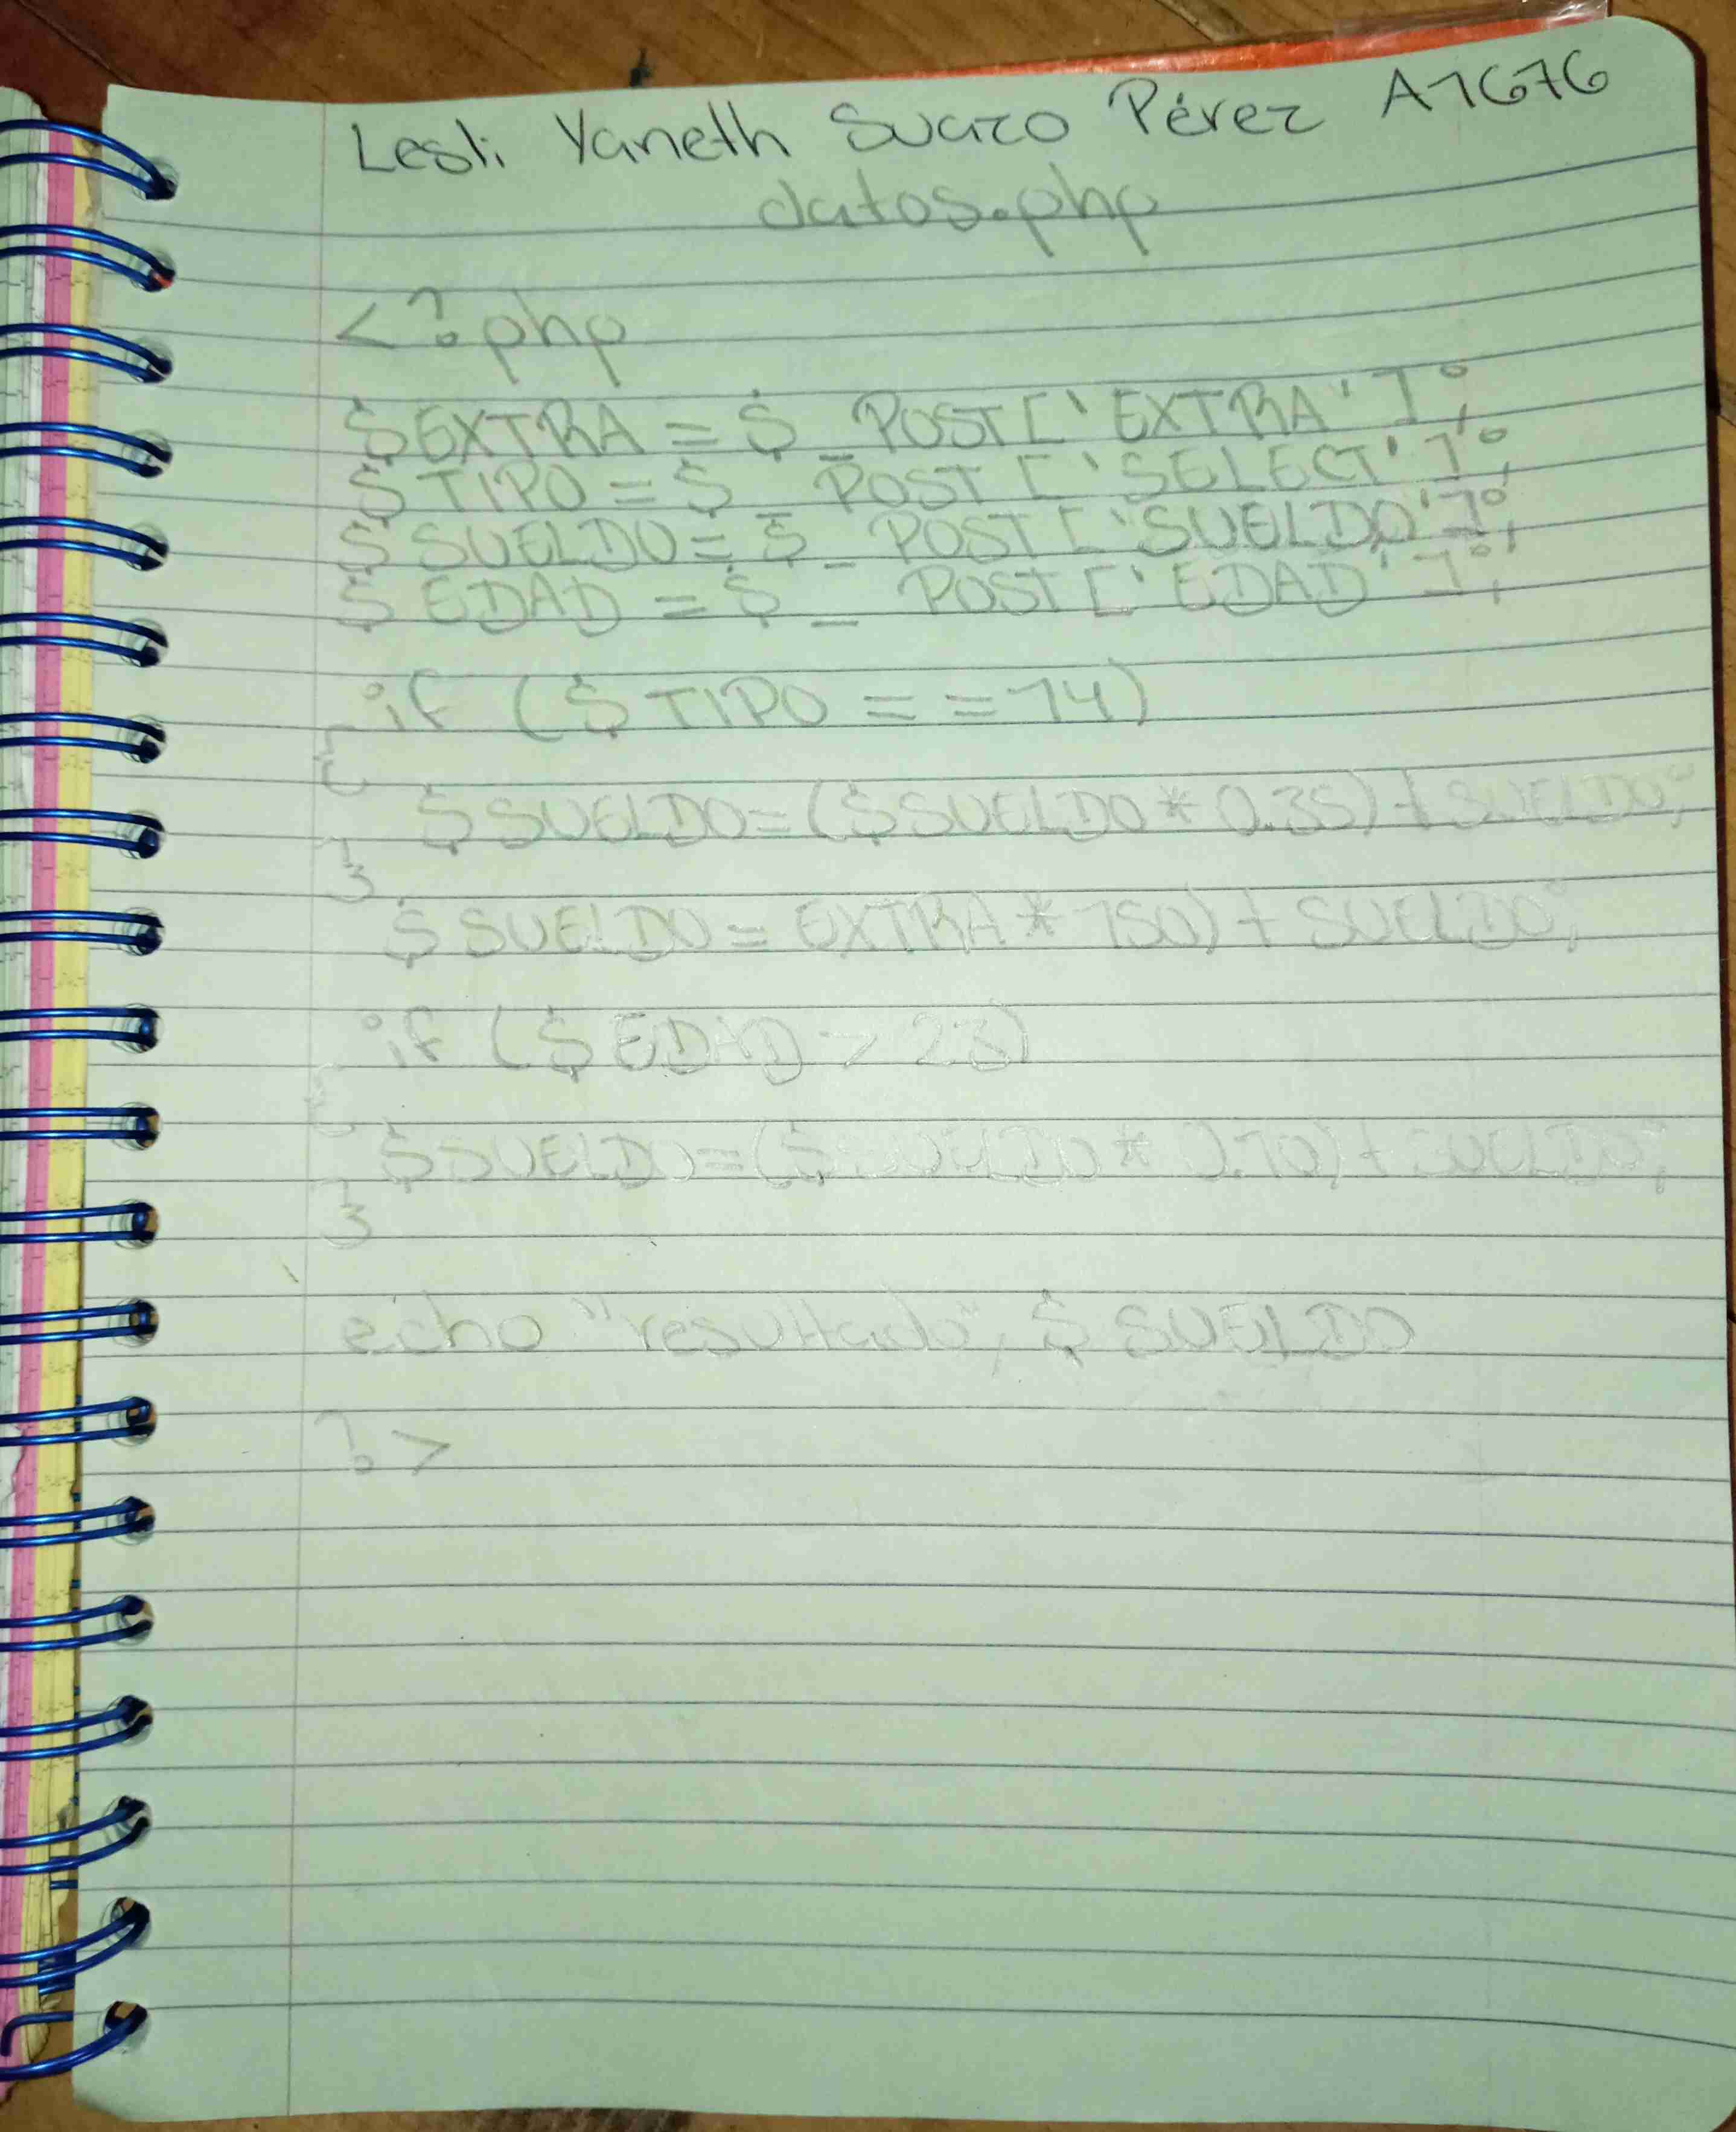 Lesli Yaneth Suazo Pérez A1676
datos.php
<?php
$EXTRA = $_POST['EXTRA'];
$TIPO = $_POST['SELECT'];
$SUELDO = $_POST['SUELDO'];
$EDAD = $_POST['EDAD'];
if ($TIPO == 14)
{
$SUELDO=($SUELDO*0.35)+SUELDO;
}
$SUELDO = EXTRA*150)+SUELDO;
if ($EDAD > 23)
{
$SUELDO=($SUELDO*0.10)+SUELDO;
}
echo "resultado", $SUELDO
?>